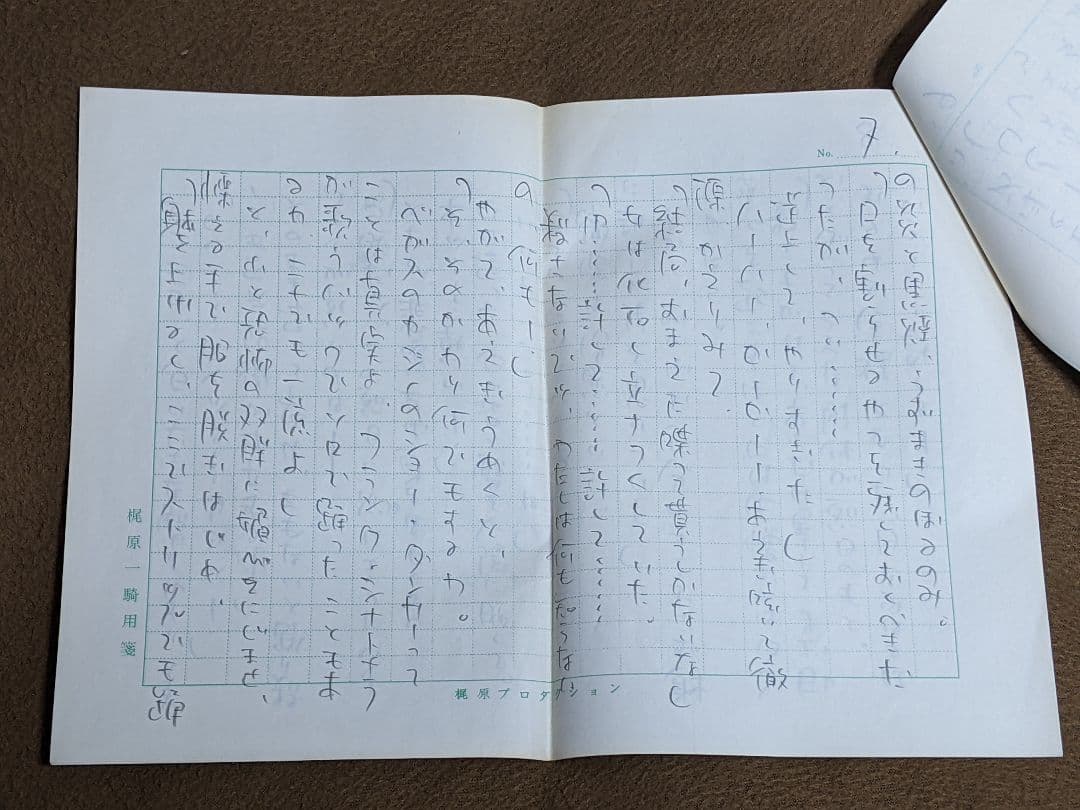 7.
No.
の炎と黒煙、うずまきのぼるのみ。
「口を割らせるやつを残しておくべきだ
ったが、つい……
逆上して、やりすぎた」
ハーハー、かーかーーあえぎ喘いで徹
かえりみて
「結局、おまえに喋って貰うしかないな」
女は化石し立ちつくしていた。
「ゆ……許して……許して……
殺さないで、わたしは何も知らな
の、何もー」
やがて、あえぎうめくと、
「そ、そのかわり何でもするわ。
ベガスのカジノのショー・ダンサーって
ことは真実よ。フランク・シナトラ
が歌うバックでソロで踊ったこともあ
るわ。ここでも一流よ」
と、やっと恐怖の双眸に媚びをにじませ、
慄える手で服を脱ぎはじめ、
ここでストリップでも踊
梶原一騎用箋
梶原プロダクション